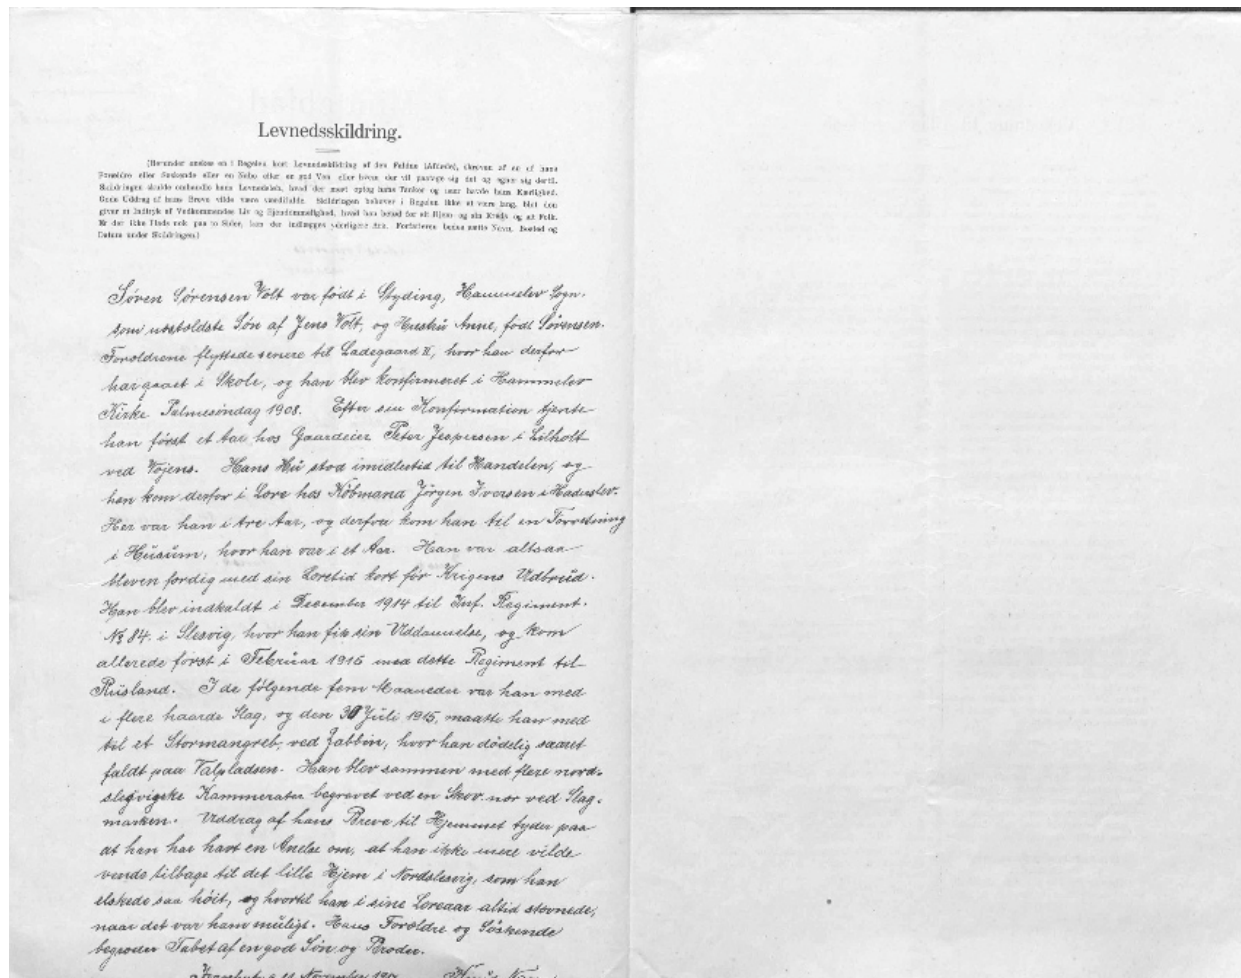 Levnedsskildring.
(Herunder ønskes en i Regelen kort Levnedsskildring af den Faldne (Afdøde), skreven af en af hans
Forældre eller Søskende eller en Nabo eller en god Ven eller hvem der vil paatage sig det og egner sig dertil.
Skildringen skulde omhandle hans Levnedsløb, hvad der mest optog hans Tanker og især havde hans Kærlighed.
Gode Uddrag af hans Breve vilde være værdifulde. Skildringen behøver i Regelen ikke at være lang, blot den
giver et Indtryk af Vedkommendes Liv og Ejendommelighed, hvad han betød for sit Hjem og sin Kreds og sit Folk.
Er der ikke Plads nok paa to Sider, kan der indlægges yderligere Ark. Forfatteren bedes sætte Navn, Bosted og
Datum under Skildringen.)
Søren Sørensen Volt var født i Styding, Hammelev Sogn.
som næstældste Søn af Jens Volt, og Hustrü Anne, født Sørensen.
Forældrene flyttede senere til Ladegaard II, hvor han derfor
har gaaet i Skole, og han blev konfirmeret i Hammelev
Kirke Palmesøndag 1908. Efter sin Konfirmation tjente
han først et Aar hos Gaardeier Peter Jespersen i Lilholt
ved Vojens. Hans Hü stod imidlertid til Handelen, og
han kom derfor i Lære hos Købmand Jörgen Iversen i Haderslev.
Her var han i tre Aar, og derfra kom han til en Forretning
i Hüsüm, hvor han var i et Aar. Han var altsaa
bleven færdig med sin Læretid kort før Krigens Udbrüd.
Han blev indkaldt i December 1914 til Inf. Regiment.
№ 84. i Slesvig, hvor han fik sin Uddannelse, og kom
allerede først i Februar 1915 med dette Regiment til
Rüsland. I de følgende fem Maaneder var han med
i flere haarde Slag, og den 30 Jüli 1915, maatte han med
til et Stormangreb, ved Zabbin, hvor han dödelig saaret
faldt paa Valpladsen. Han blev sammen med flere nord-
slesvigske Kammerater begrevet ved en Skov nær ved Slag-
marken. Uddrag af hans Breve til Hjemmet tyder paa
at han har havt en Anelse om, at han ikke mere vilde
vende tilbage til det lille Hjem i Nordslesvig, som han
elskede saa höit, og hvortil han i sine Læreaar altid stævnede,
naar det var ham müligt. Hans Forældre og Söskende
begræder Tabet af en god Søn og Broder.
November